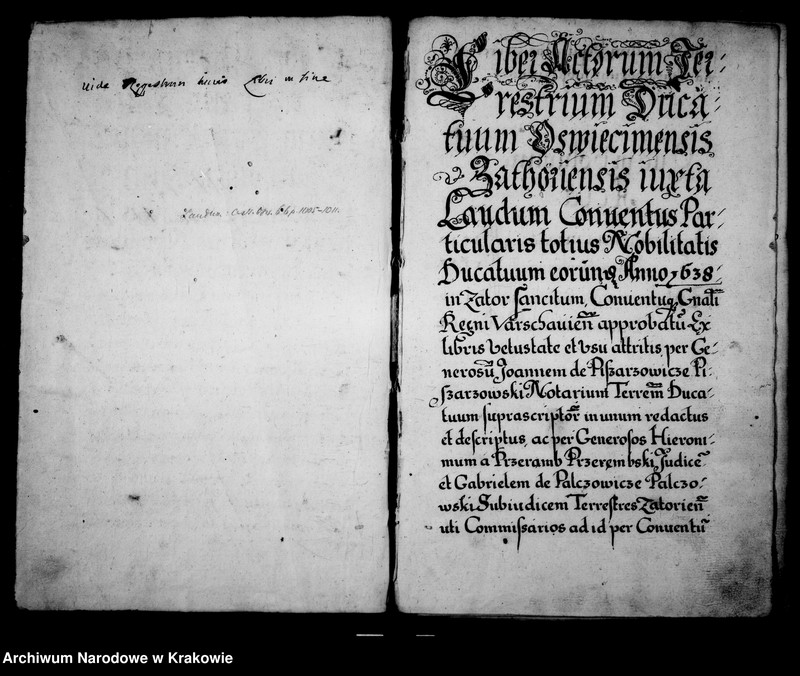 uide Regestrum huius Libri in fine
Laudum: Castr. 6 p. 1005-1011.
Liber Actorum Ter:
restrium Duca:
tuum Oswiecimensis
Zathoriensis iuxta
Laudum Conuentus Par:
ticularis totius Nobilitatis
Ducatuum eorunq Anno 1638
in Zator sancitum, Conuentuq Gnali
Regni Varschauien approbatu Ex
libris Vetustate et Vsu attritis per Ge:
nerosu Joannem de Piszarzowicze Pi:
szarzowski Notarium Terrem Duca:
tuum suprascriptor in unum redactus
et descriptus, ac per Generosos Hieroni:
mum a Przeramb Przerembski Judice
et Gabrielem de Palczowicze Palczo:
wski Subiudicem Terrestres Zatorien
uti Commissarios ad id per Conuentu
Archiwum Narodowe w Krakowie